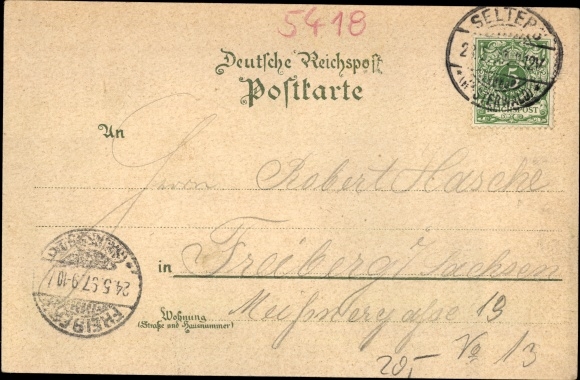 5418
SELTERS
(WESTERWALD)
5
Deutsche Reichspost
Postkarte
An
Herrn Robert Hasche
in Freiberg i/ Sachsen
Wohnung
(Straße und Hausnummer)
Meißnergasse 13
No 13
20,-
FREIBERG
24.5.97. 9-10